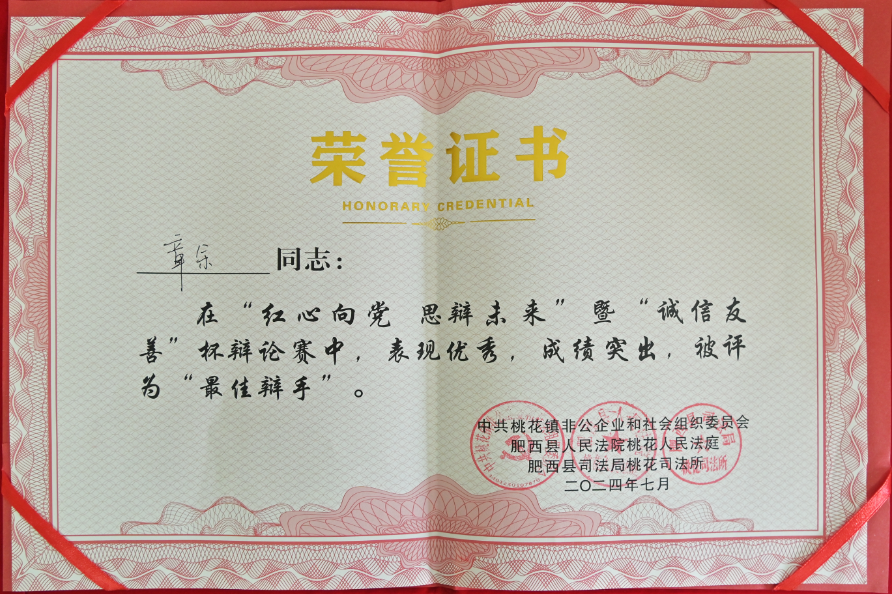 荣誉证书
HONORARY CREDENTIAL
章乐 同志：
在“红心向党 思辩未来”暨“诚信友
善”杯辩论赛中，表现优秀，成绩突出，被评
为“最佳辩手”。
中共桃花镇非公企业和社会组织委员会
肥西县人民法院桃花人民法庭
肥西县司法局桃花司法所
二〇二四年七月